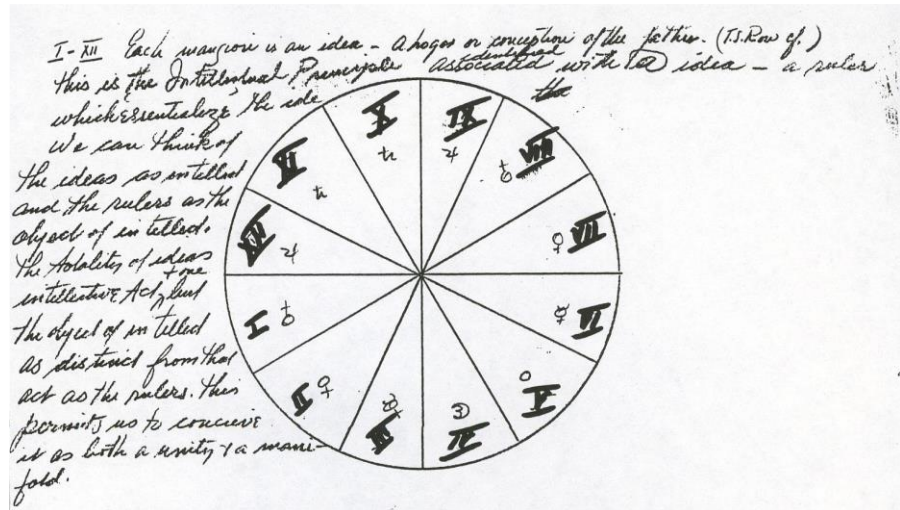 I-XII Each mansion is an idea - a logos or conception of the father. (T.S. Row cf.)
identified
This is the Intellectual Principle associated with a idea - a ruler
which essentialize the ide the
We can think of
the ideas as intellect
and the rulers as the
object of intellect.
The totality of ideas
+ one
intellective Act, but
the object of intellect
as distinct from that
act as the rulers. This
permits us to conceive
it as both a unity & a mani-
fold.
X
♄
IX
♃
VIII
♂
VII
♀
VI
☿
V
IV
III
☿
II
♀
I
♂
XII
♃
XI
♄